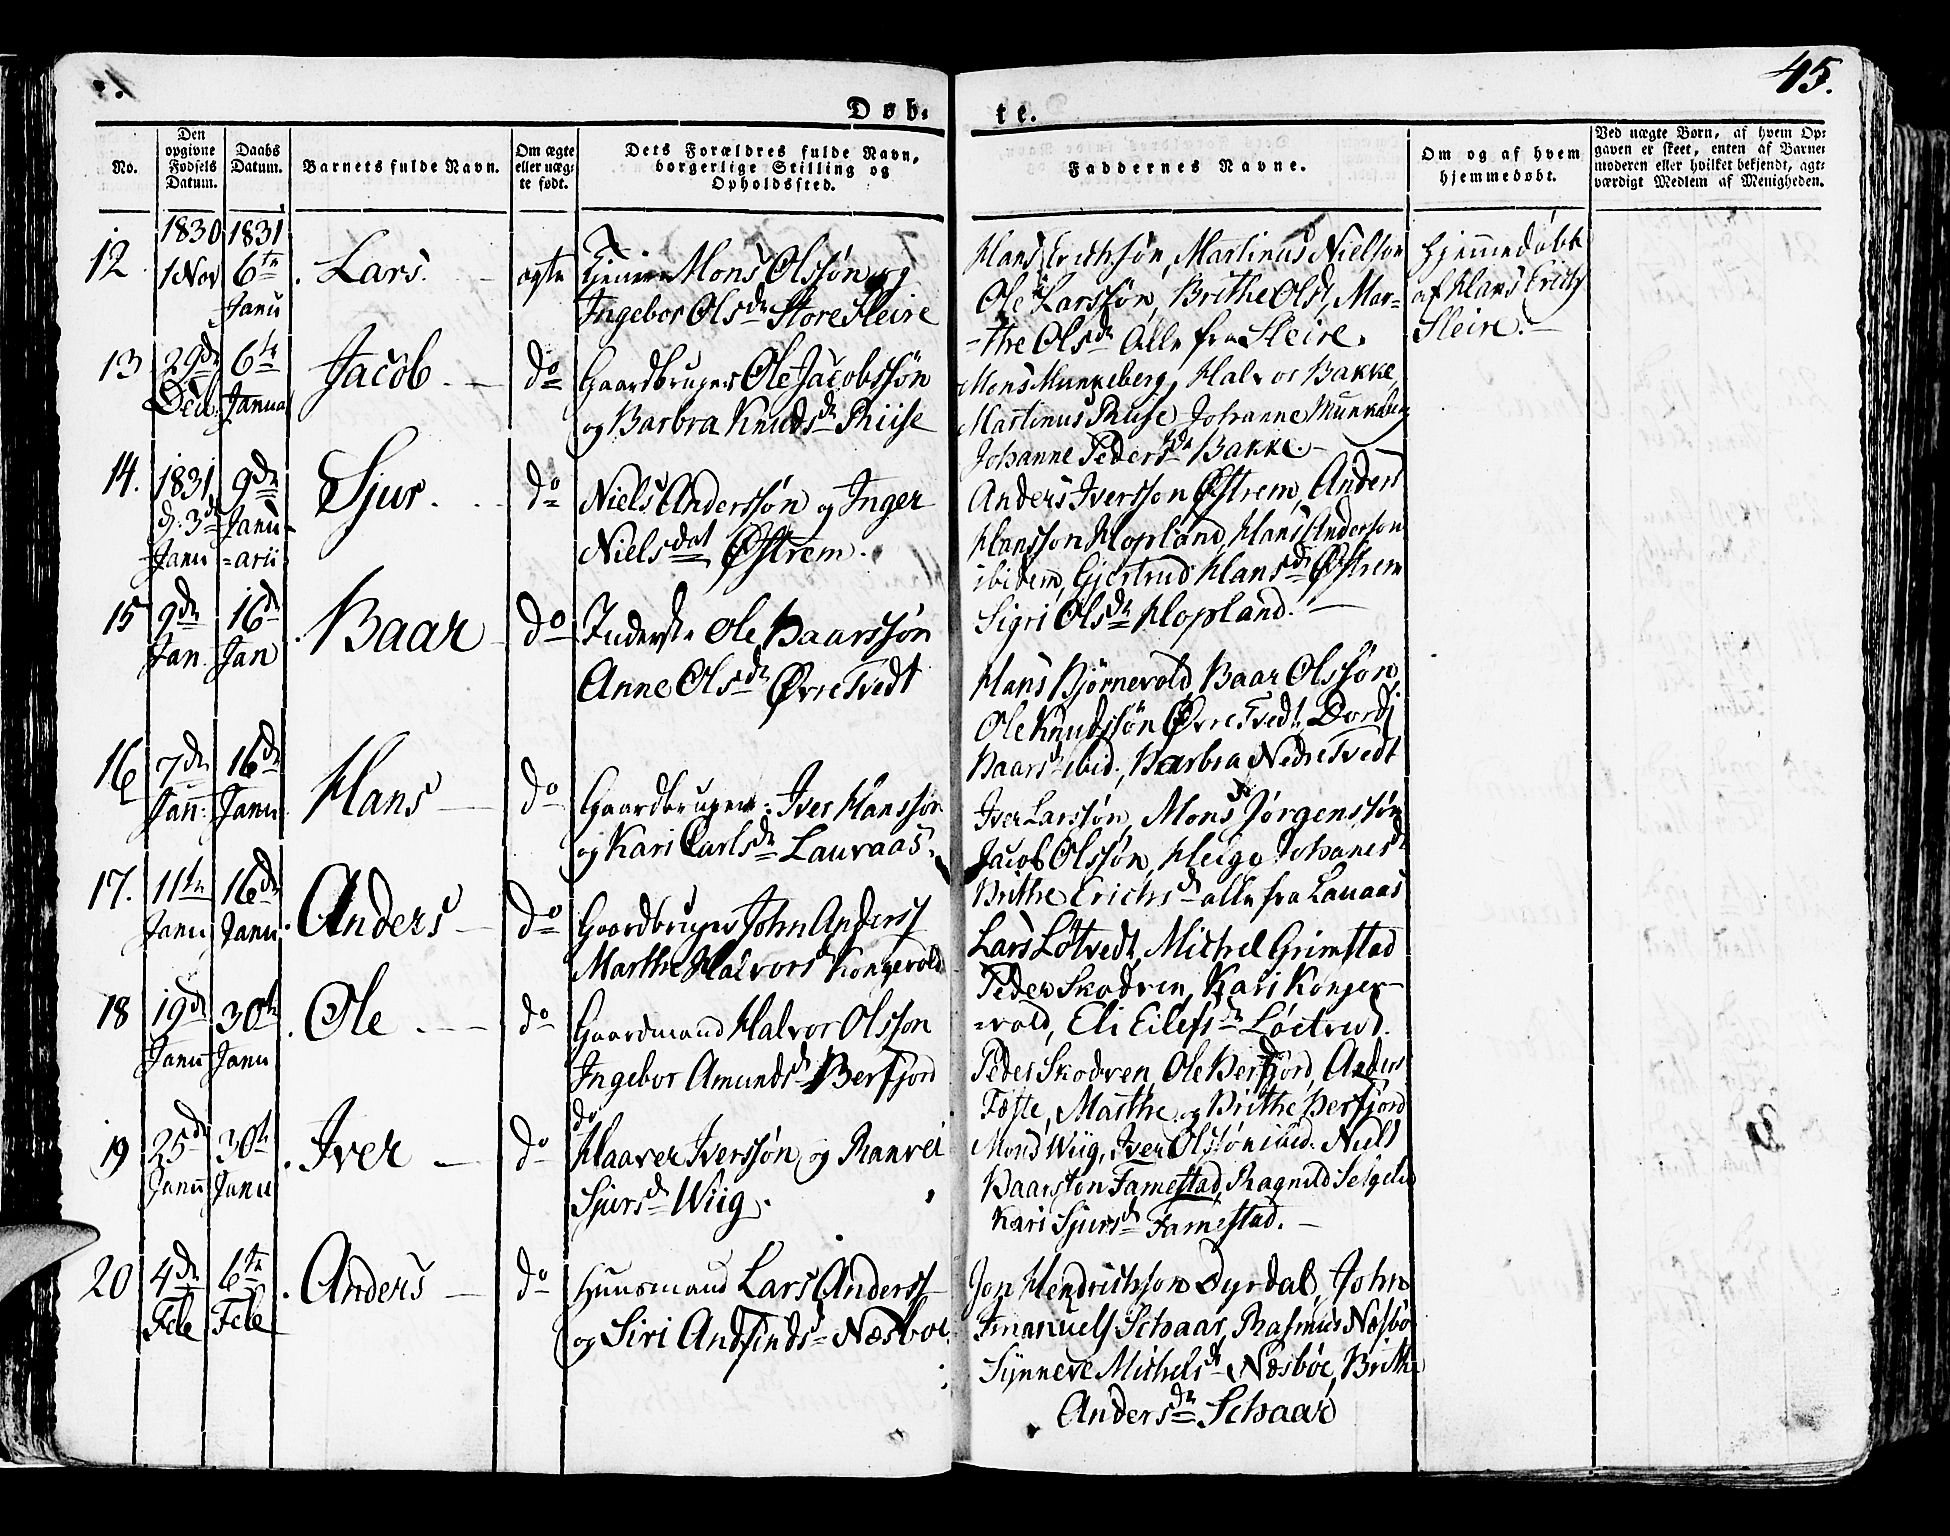 45.
Døb-
te.
No.
Den opgivne Fødsels Datum.
Daabs Datum.
Barnets fulde Navn.
Om ægte eller uægte født.
Dets Forældres fulde Navn, borgerlige Stilling og Opholdssted.
Faddernes Navne.
Om og af hvem hjemmedøbt.
Ved uægte Børn, af hvem Opgaven er skeet, enten af Barnemoderen eller hvilket bekjendt, agtværdigt Medlem af Menigheden.
12
1830
1 Nov
1831
6te
Janu
Lars.
ægte
Mons Olssøn og
Ingebor Olsdr Store Sleire
Hans Erichsøn, Martinus Nielson
Ole Larssøn, Brithe Olsd, Mar-
-the Olsdr alle fra Sleire.
Hjemmedøbt
af Hans Erichs
Sleire.
13
29de
Dec.
6te
Janua
Jacob
do
Gaardbruger Ole Jacobssøn
og Barbra Knudsdr Riise
Mons Munkeberg, Halvor Bakke,
Martinus Riise Johanne Munkeberg
Johanne Pedersdr Bakke.
14.
1831
d. 3de
Janu
9de
Janu-
-arii
Sjur.
do
Niels Anderssøn og Inger
Nielsdat Østrem.
Anders Iversson Østrem, Anders
Hansson Hopland, Hans Anderson
ibidem, Gjertrud Hansdr Østrem
Sigri Olsdr Hopland.
15
9de
Jan.
16de
Jan
Baar
do
Inderste Ole Baarssøn
Anne Olsdr Øvre Tvedt
Hans Bjørnevold, Baar Olssøn,
Ole Knudssøn Øvre Tvedt, Dordi
Baarsd ibid., Barbra Nedre Tvedt
16
7de
Jan:
16de
Janu
Hans
do
Gaardbruger: Iver Hanssøn
og Kari Carlsdr Lauvaas.
Iver Larssøn, Mons Jørgenssøn
Jacob Olssøn, Helge Johanesd
Brithe Erichsd alle fra Lauaas
17.
11te
Janu
16de
Janu
Anders
do
Gaardbruger John Anderss
Marthe Halvorsd Kongevold
Lars Løtvedt, Michel Grimstad
Peder Skodven, Kari Konge-
-vold, Eli Eilefsdr Løetved.
18
19de
Janu
30te
Janu
Ole
do
Gaardmand Halvor Olsson
Ingebor Amundsd Berfjord
Peder Skodven, Ole Berfjord, Anders
Tøfte, Marthe og Brithe Berfjord
19
25de
Janu
30te
Janu
Iver
do
do
Haaver Iverssøn og Ranvei
Sjursd Wiig.
Mons Wiig, Iver Olssøn ibid. Niels
Baarston Famestad, Ragnild
Kari Sjursd Famestad.
20
4de
Feb
6te
Feb
Anders
do
Huusmand Lars Anderss
og Siri Andfindsd Næsbøe
Jon Hendrichson Dyrdal, John
Imanuels Schaar, Rasmus Næsbø
Synneve Michelsdr Næsbøe, Brithe
Andersdr Schaar